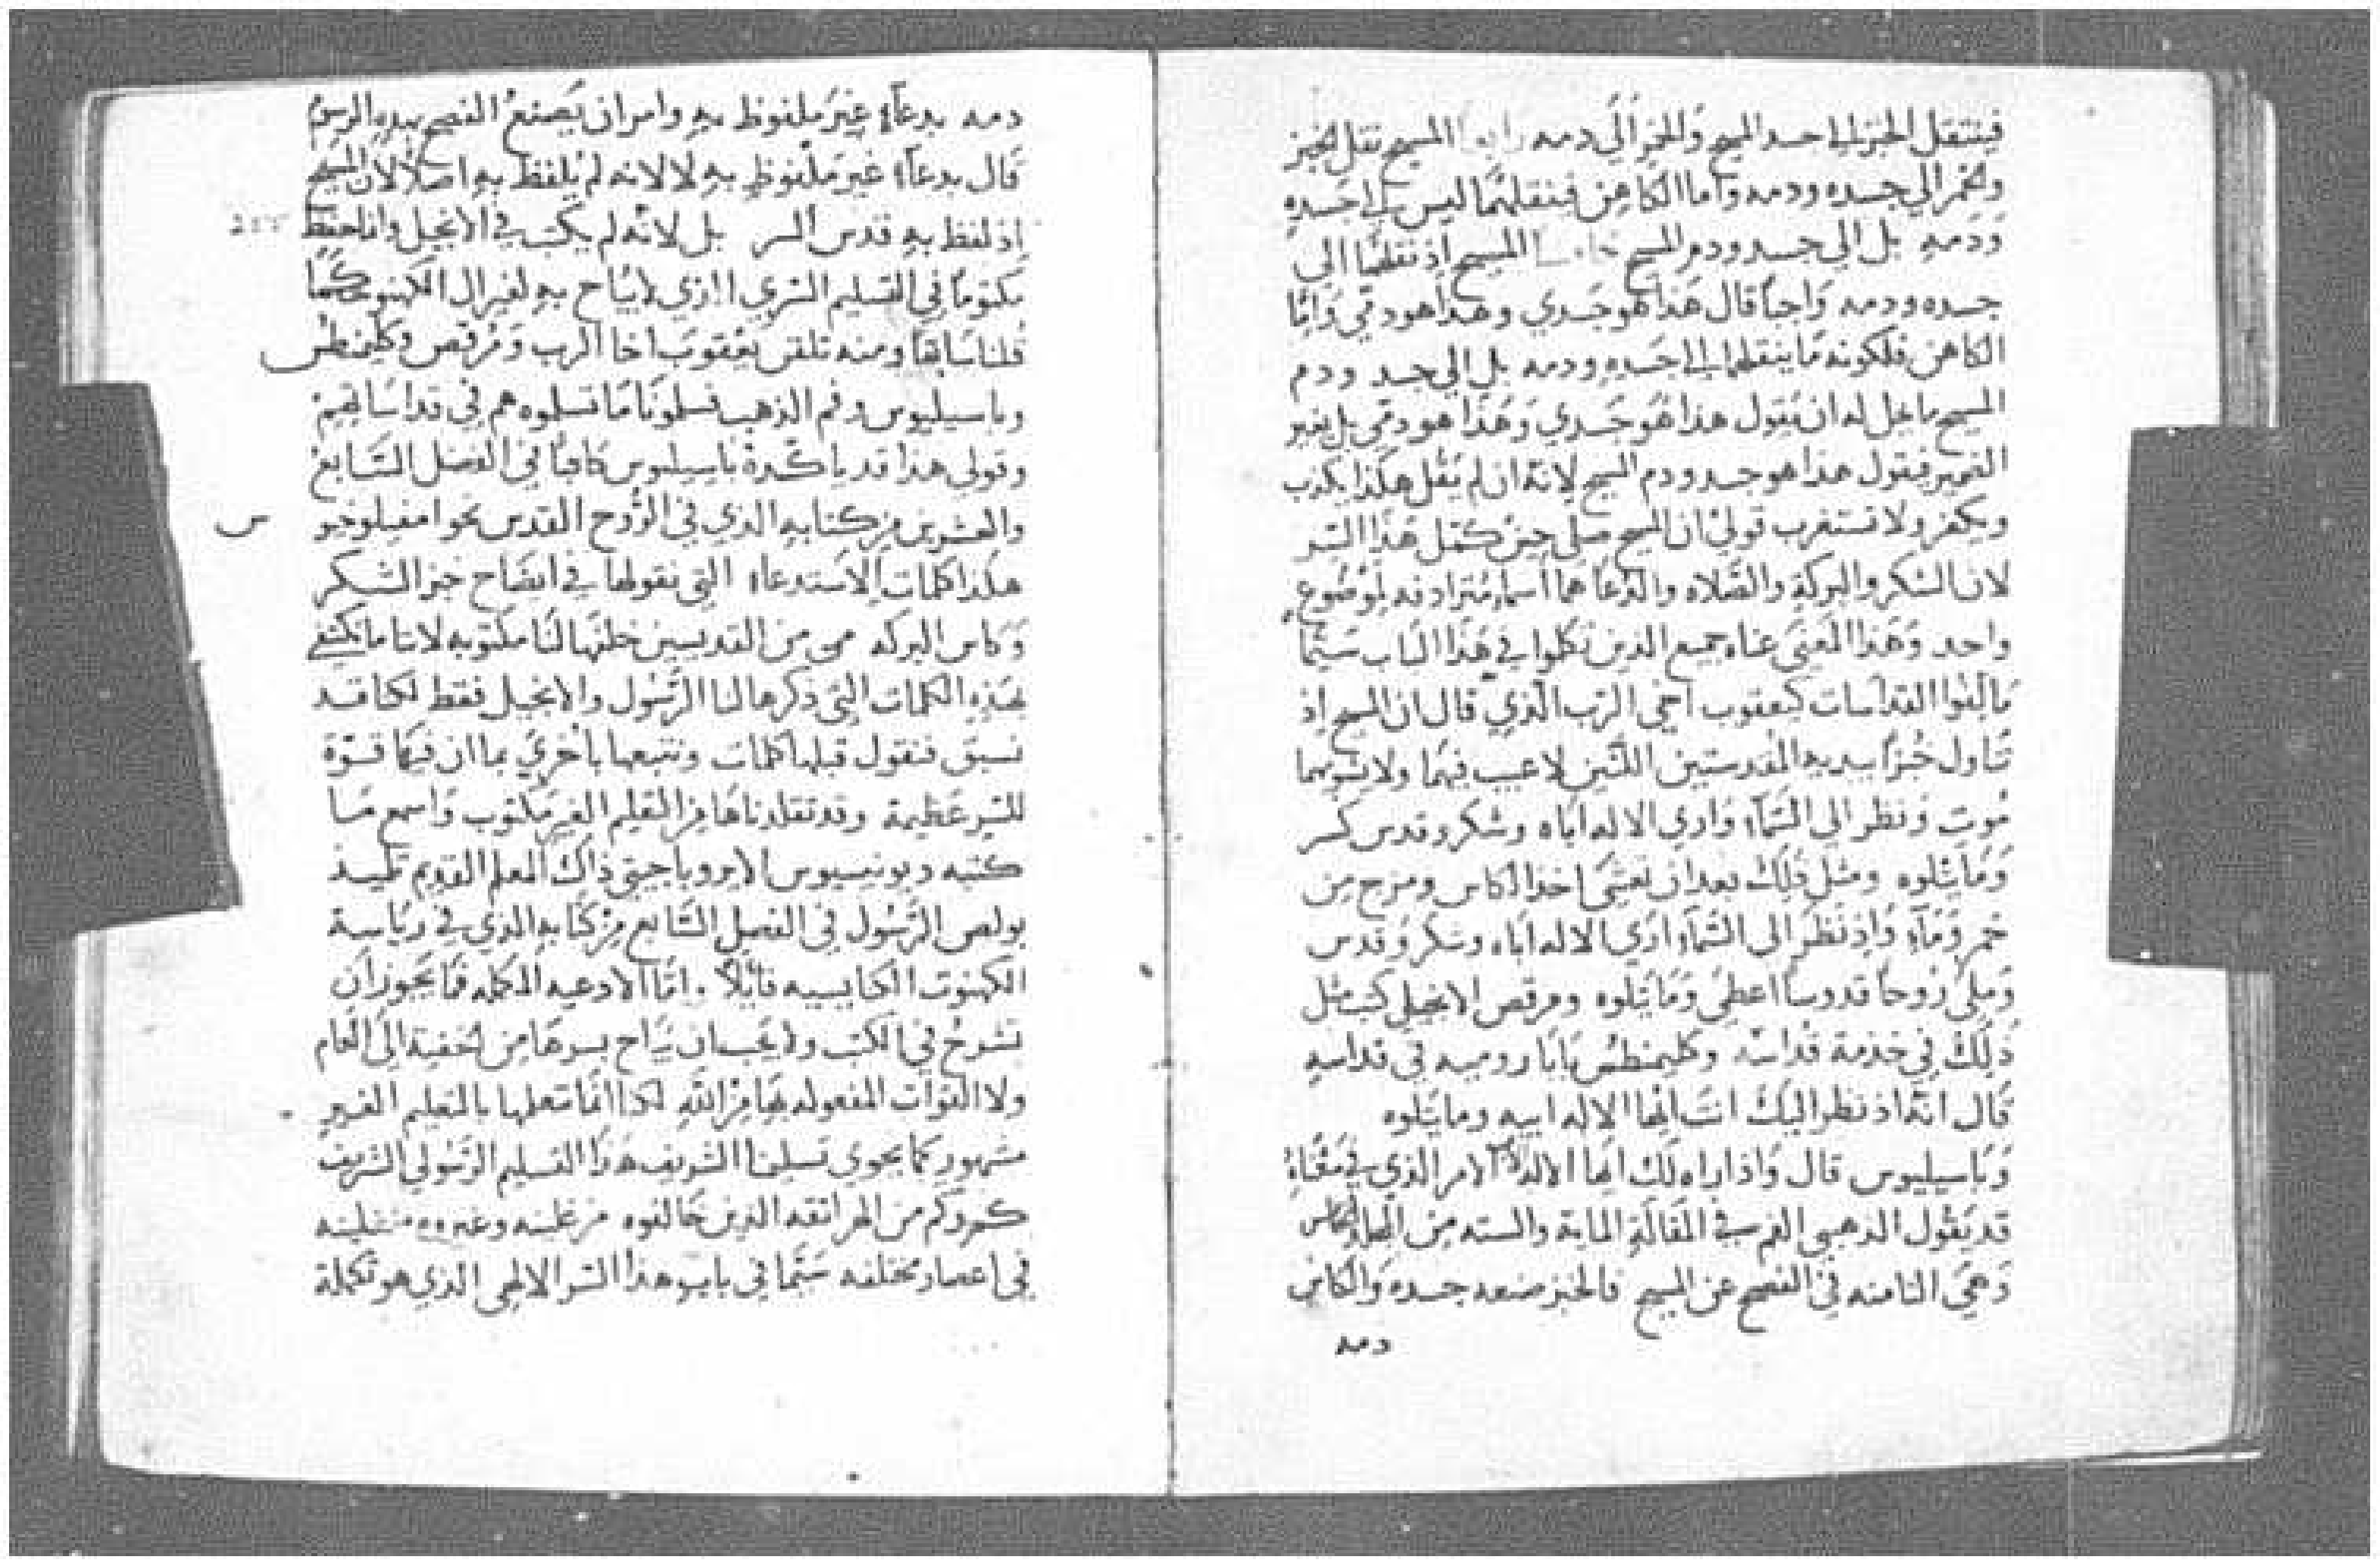 فينتقل الخبز الي جسد المسيح والخمر الي دمه رابعا المسيح نقل الخبز
والخمر الي جسده ودمه واما الكاهن فينقلهما ليس الي جسده
ودمه بل الي جسد ودم المسيح خامسا المسيح اذ نقلهما الي
جسده ودمه واجبا قال هذا هو جسدي وهذا هو دمي واما
الكاهن فلكونه ما ينقلهما الي جسده ودمه بل الي جسد ودم
المسيح ما يحل له ان يقول هذا هو جسدي وهذا هو دمي بل يغير
الضمير فيقول هذا هو جسد ودم المسيح لانه ان لم يقل هكذا يكذب
ويكفر ولا تستغرب قولي ان المسيح صلي حين كمل هذا السر
لان الشكر والبركة والصلاه والدعا هما اسماء مترادفه لموضوع
واحد وهذا المعني عناه جميع الذين تكلموا في هذا الباب سيما
مالفوا القداسات كيعقوب اخي الرب الذي قال ان المسيح اذ
تناول خبزا بيديه المقدستين اللتين لا عيب فيهما ولا يشوبهما
موت ونظر الي السماء واري الاله اباه وشكر وقدس كسر
وما يتلوه ومثل ذلك بعد ان تعشي اخذ الكاس ومزج من
خمر وماء واذ نظر الي السماء واري الاله اباه وشكر وقدس
وملي روحا قدوسا اعطي وما يتلوه ومرقص الانجيلي كتب مثل
ذلك في خدمة قداسه وكليمنطس بابا روميه في قداسه
قال انه اذ نظر اليك انت ايها الاله ابيه وما يتلوه
وباسيليوس قال واذ اراه لك ايها الاله الاب الامر الذي في معناه
قد يقول الذهبي الفم في المقالة الماية والسته من المجلد الخامس
وهي الثامنه في الفصح عن المسيح فالخبز صنعه جسده والكاس
دمه
دمه بدعاء غير ملفوظ به وامر ان يصنع الفصح بهذه الرسوم
قال بدعاء غير ملفوظ به لا لانه لم يلفظ به اصلا لان المسيح
اذ لفظ به قدس السر بل لانه لم يكتب في الانجيل وانما حفظ
مكتوما في التسليم السري الذي لا يباح به لغير ال الكهنوت كما
قلنا سابقا ومنه تلقن يعقوب اخا الرب ومرقص وكليمنطس
وباسيليوس وفم الذهب فسلمونا ما تسلموه هم في قداساتهم
وقولي هذا قد ياكده باسيليوس كافيا في الفصل السابع
والعشرين من كتابه الذي في الروح القدس نحو امفيلوخيوس
هكذا كلمات الاستدعاء التي نقولها في ايضاح خبز الشكر
وكاس البركه من من القديسين خلفها لنا مكتوبه لاننا ما نكتفي
بهذه الكلمات التي ذكرها لنا الرسول والانجيل فقط لكنا قد
نسبق فنقول قبلها كلمات ونتبعها باخري بما ان فيها قوة
للسر عظيمة وقد تقلدناها من التعليم الغير مكتوب واسمع ما
كتبه ديونيسيوس الاريوباجيتي ذاك المعلم القديم تلميذ
بولص الرسول في الفصل السابع من كتابه الذي في رياسة
الكهنوت الكنايسيه قايلا . اما الادعيه المكمله فما يجوز ان
تشرح في الكتب ولا يجب ان يباح بسرها من الخفية الي العام
ولا القوات المفعوله بها من الله لكنا انما نتعلمها بالتعليم الغير
مشهور كما يحوي تسليمنا الشريف هذا التسليم الرسولي الشريف
كم وكم من الهراتقه الذين خالفوه مزعلينه وغيروه منفلينه
في اعصار مختلفه سيما في باب هذا السر الالهي الذي هو تكملة